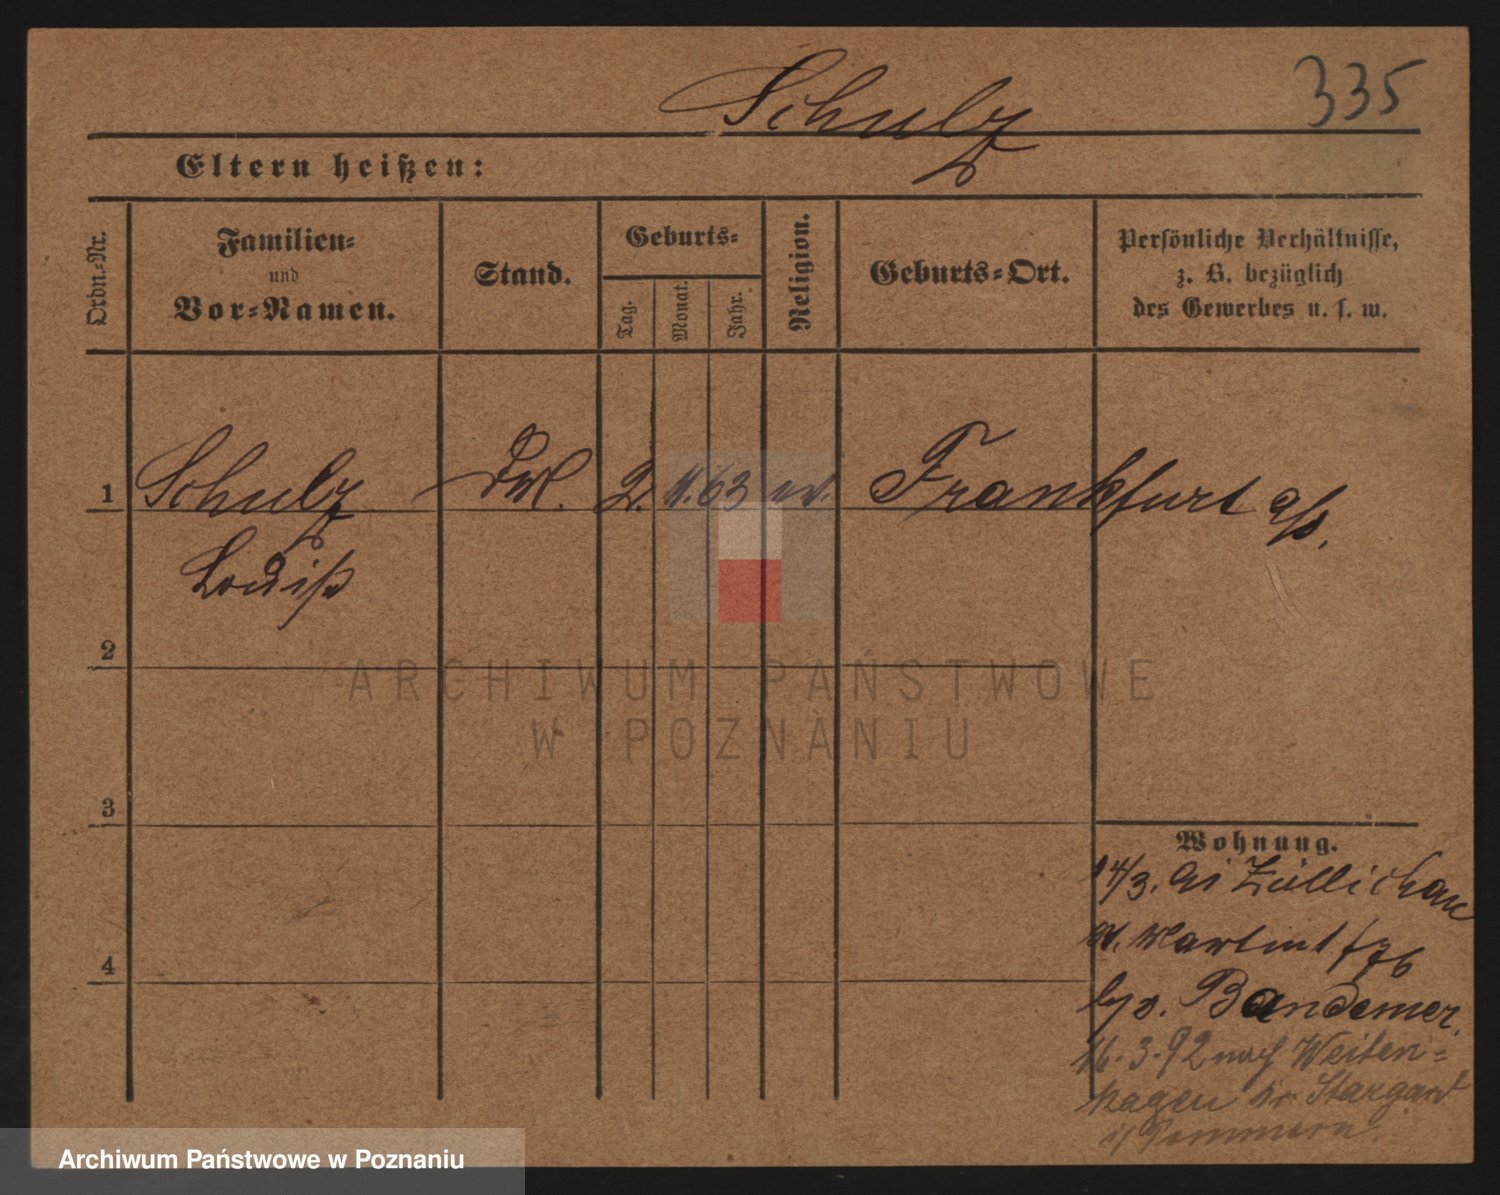 Schulz
335
Eltern heißen:
Ordn.-Nr.
Familien-
und
Vor-Namen.
Stand.
Geburts-
Tag.
Monat.
Jahr.
Religion.
Geburts-Ort.
Persönliche Verhältnisse,
z. B. bezüglich
des Gewerbes u. s. w.
1 Schulz Frl. 2. 11. 63 ev. Frankfurt a/O.
Louise
2
3
4
Wohnung.
14/3. Züllichau
St. Martin
Bandemer.
16.3.92 nach Weiten-
hagen Kr. Stargard
i/ Pommern.
ARCHIWUM PAŃSTWOWE
W POZNANIU
Archiwum Państwowe w Poznaniu